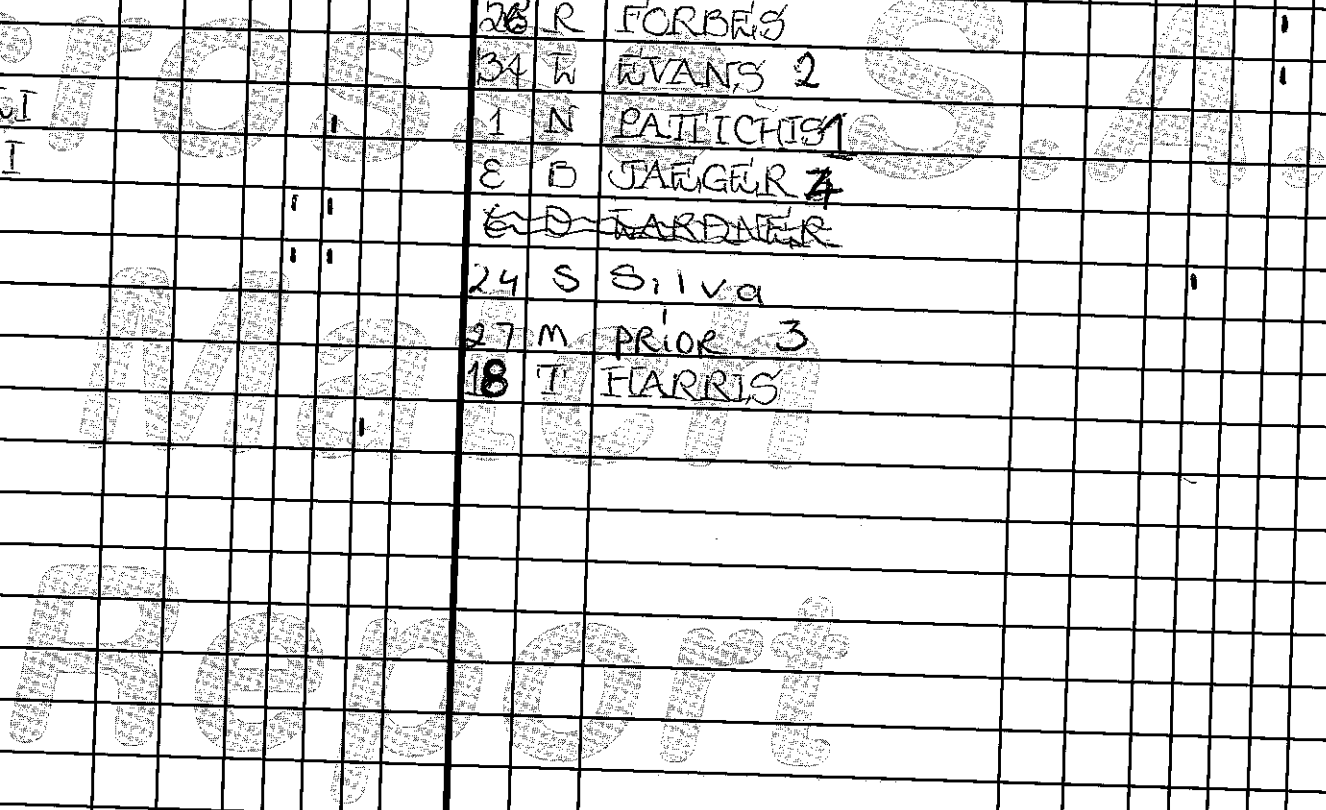 26 R FORBES
34 E EVANS 2
1 N PATTICHIS 1
I
8 B JAEGER 4
24 S Silva
27 M PRIOR 3
18 T HARRIS
S.A.
Match
Report